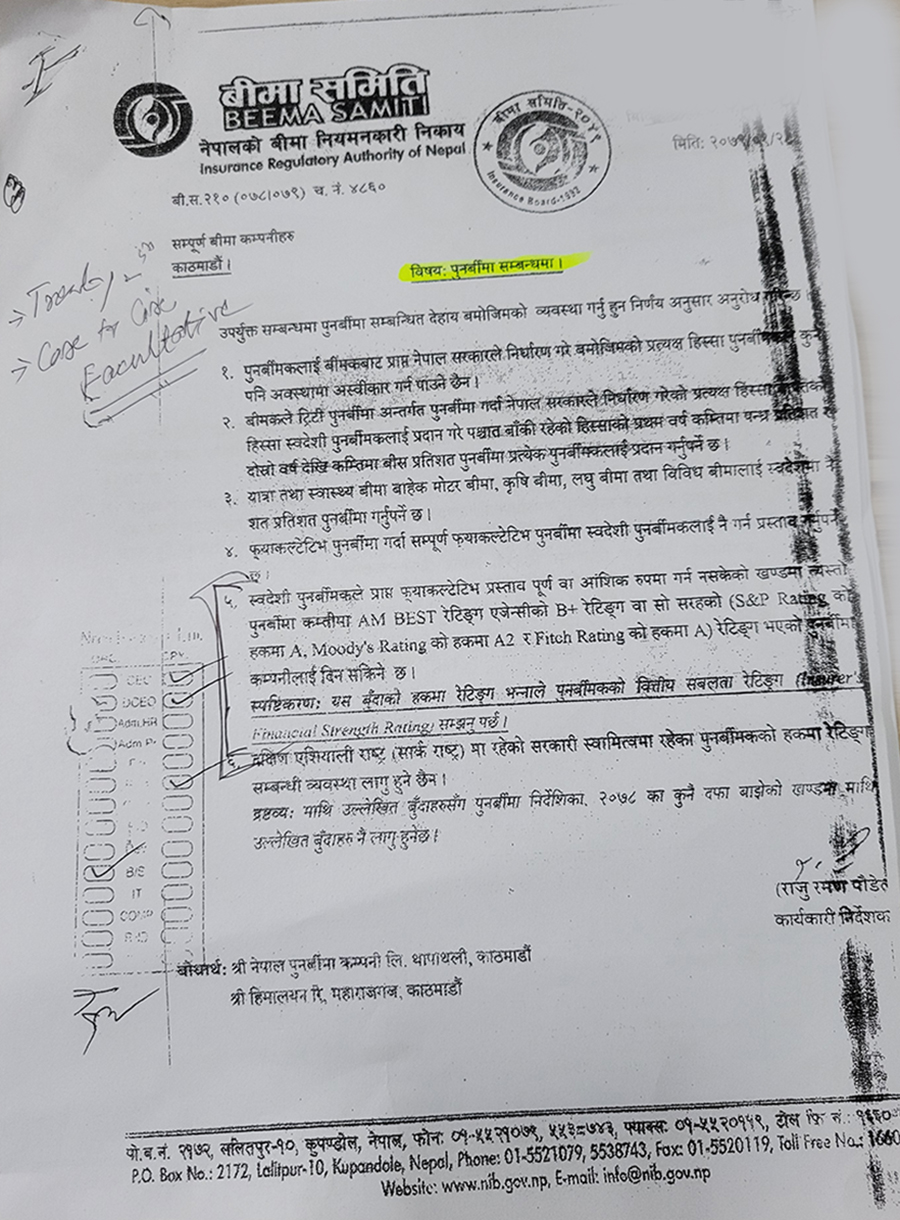 बीमा समिति
BEEMA SAMITI
नेपालको बीमा नियमनकारी निकाय
Insurance Regulatory Authority of Nepal
बीमा समिति-२०४९
Insurance Board-1992
मिति: २०७९
बी.स.२१० (०७८।०७९) च. नं. ४८६०
सम्पूर्ण बीमा कम्पनीहरु
काठमाडौं।
विषय: पुनर्बीमा सम्बन्धमा।
→ Treaty -
→ Case by Case
Facultative
उपर्युक्त सम्बन्धमा पुनर्बीमा सम्बन्धित देहाय बमोजिमको व्यवस्था गर्नु हुन निर्णय अनुसार अनुरोध गरिन्छ
१. पुनर्बीमकलाई बीमकबाट प्राप्त नेपाल सरकारले निर्धारण गरे बमोजिमको प्रत्यक्ष हिस्सा पुनर्बीमकले कुनै
पनि अवस्थामा अस्वीकार गर्न पाउने छैन।
२. बीमकले ट्रिटी पुनर्बीमा अन्तर्गत पुनर्बीमा गर्दा नेपाल सरकारले निर्धारण गरेको प्रत्यक्ष हिस्सा
हिस्सा स्वदेशी पुनर्बीमकलाई प्रदान गरे पश्चात बाँकी रहेको हिस्साको प्रथम वर्ष कम्तिमा पन्ध्र प्रतिशत र
दोस्रो वर्ष देखि कम्तिमा बीस प्रतिशत पुनर्बीमा प्रत्येक पुनर्बीमकलाई प्रदान गर्नुपर्ने छ।
३. यात्रा तथा स्वास्थ्य बीमा बाहेक मोटर बीमा, कृषि बीमा, लघु बीमा तथा विविध बीमालाई स्वदेशमा नै
शत प्रतिशत पुनर्बीमा गर्नुपर्ने छ।
४. फ्याकल्टेटिभ पुनर्बीमा गर्दा सम्पूर्ण फ्याकल्टेटिभ पुनर्बीमा स्वदेशी पुनर्बीमकलाई नै गर्न प्रस्ताव गर्नुपर्ने
छ।
५. स्वदेशी पुनर्बीमकले प्राप्त फ्याकल्टेटिभ प्रस्ताव पूर्ण वा आंशिक रुपमा गर्न नसकेको खण्डमा त्यस्तो
पुनर्बीमा कम्तीमा AM BEST रेटिङ्ग एजेन्सीको B+ रेटिङ्ग वा सो सरहको (S&P Rating को
हकमा A, Moody's Rating को हकमा A2 र Fitch Rating को हकमा A) रेटिङ्ग भएको पुनर्बीमा
कम्पनीलाई दिन सकिने छ।
स्पष्टिकरण: यस बुँदाको हकमा रेटिङ्ग भन्नाले पुनर्बीमकको वित्तीय सबलता रेटिङ्ग (Insurer's
Financial Strength Rating) सम्झनु पर्छ।
६. दक्षिण एशियाली राष्ट्र (सार्क राष्ट्र) मा रहेको सरकारी स्वामित्वमा रहेका पुनर्बीमकको हकमा रेटिङ्ग
सम्बन्धी व्यवस्था लागु हुने छैन।
द्रष्टव्य: माथि उल्लेखित बुँदाहरुसँग पुनर्बीमा निर्देशिका, २०७८ का कुनै दफा बाझेको खण्डमा माथि
उल्लेखित बुँदाहरु नै लागु हुनेछ।
CEO
DCEO
Adm.HR
Adm P.
B/S
IT
COMP
(राजु रमण पौडेल
कार्यकारी निर्देशक
बोधार्थ: श्री नेपाल पुनर्बीमा कम्पनी लि. थापाथली, काठमाडौं
श्री हिमालयन रि, महाराजगंज, काठमाडौं
पो.ब.नं. २१७२, ललितपुर-१०, कुपण्डोल, नेपाल, फोन: ०१-५५२१०७९, ५५३८७४३, फ्याक्स: ०१-५५२०११९, टोल फ्रि नं.: १६६०
P.O. Box No.: 2172, Lalitpur-10, Kupandole, Nepal, Phone: 01-5521079, 5538743, Fax: 01-5520119, Toll Free No.: 1660
Website: www.nib.gov.np, E-mail: info@nib.gov.np